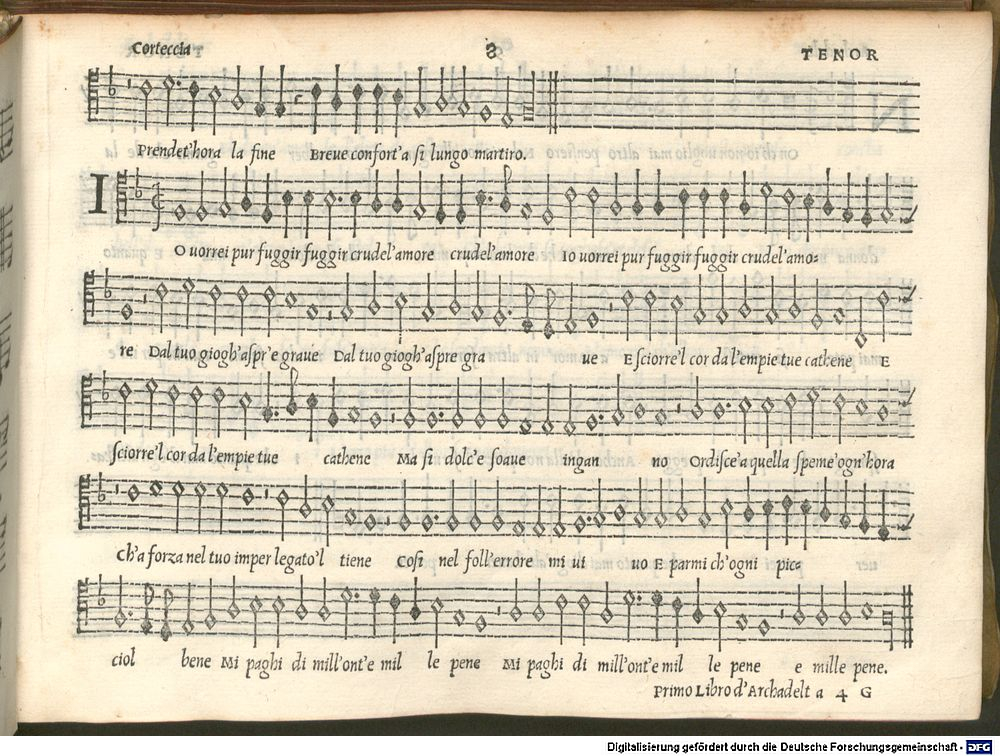 Corteccia 8 TENOR
Prendet'hora la fine Breue confort'a si lungo martiro.
I
O uorrei pur fuggir fuggir crudel'amore crudel'amore 10 uorrei pur fuggir fuggir crudel'amo-
re Dal tuo giogh'aspr'e graue Dal tuo giogh'aspr'e gra ue E sciorre'l cor da l'empie tue cathene E
sciorre'l cor da l'empie tue cathene Ma si dolc'e soaue ingan no Ordisce'a quella speme'ogn'hora
Ch'a forza nel tuo imper legato'l tiene Cosi nel foll'errore mi ui uo E parmi ch'ogni pic-
ciol bene Mi paghi di mill'ont'e mil le pene Mi paghi di mill'ont'e mil le pene e mille pene.
Primo Libro d'Archadelt a 4 G
Digitalisierung gefördert durch die Deutsche Forschungsgemeinschaft - DFG